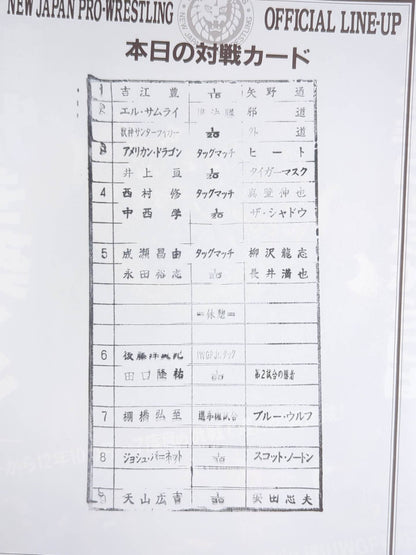 NEW JAPAN PRO-WRESTLING
OFFICIAL LINE-UP
本日の対戦カード
1 吉江 豊 1/15 矢野 通
2 エル・サムライ 邪道
獣神サンダーライガー 1/30 外道
3 アメリカン・ドラゴン タッグマッチ ヒート
井上 亘 1/30 タイガーマスク
4 西村 修 タッグマッチ 真壁伸也
中西 学 1/30 ザ・シャドウ
5 成瀬昌由 タッグマッチ 柳沢龍志
永田裕志 1/30 長井満也
=休憩=
6 IWGPJr.タッグ
田口隆祐 1/60 第2試合の勝者
7 棚橋弘至 選手権試合 ブルー・ウルフ
8 ジョシュ・バーネット 1/30 スコット・ノートン
9 天山広吉 1/30 安田忠夫